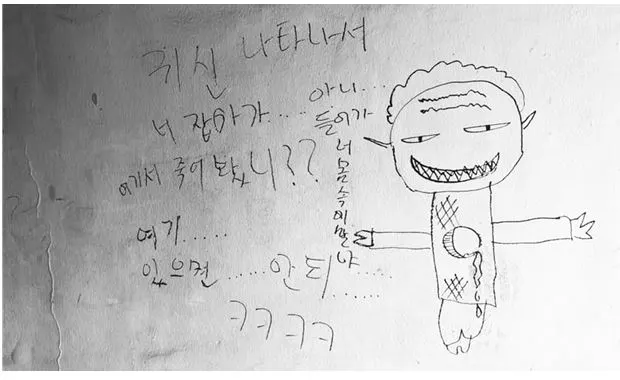 귀신 나타나서
너 잡아가....
여기서 죽어 봤니??
여기.....
있으면......안되.....
ㅋㅋㅋㅋ
아니...
들어가
너
몸
속
에
말
야